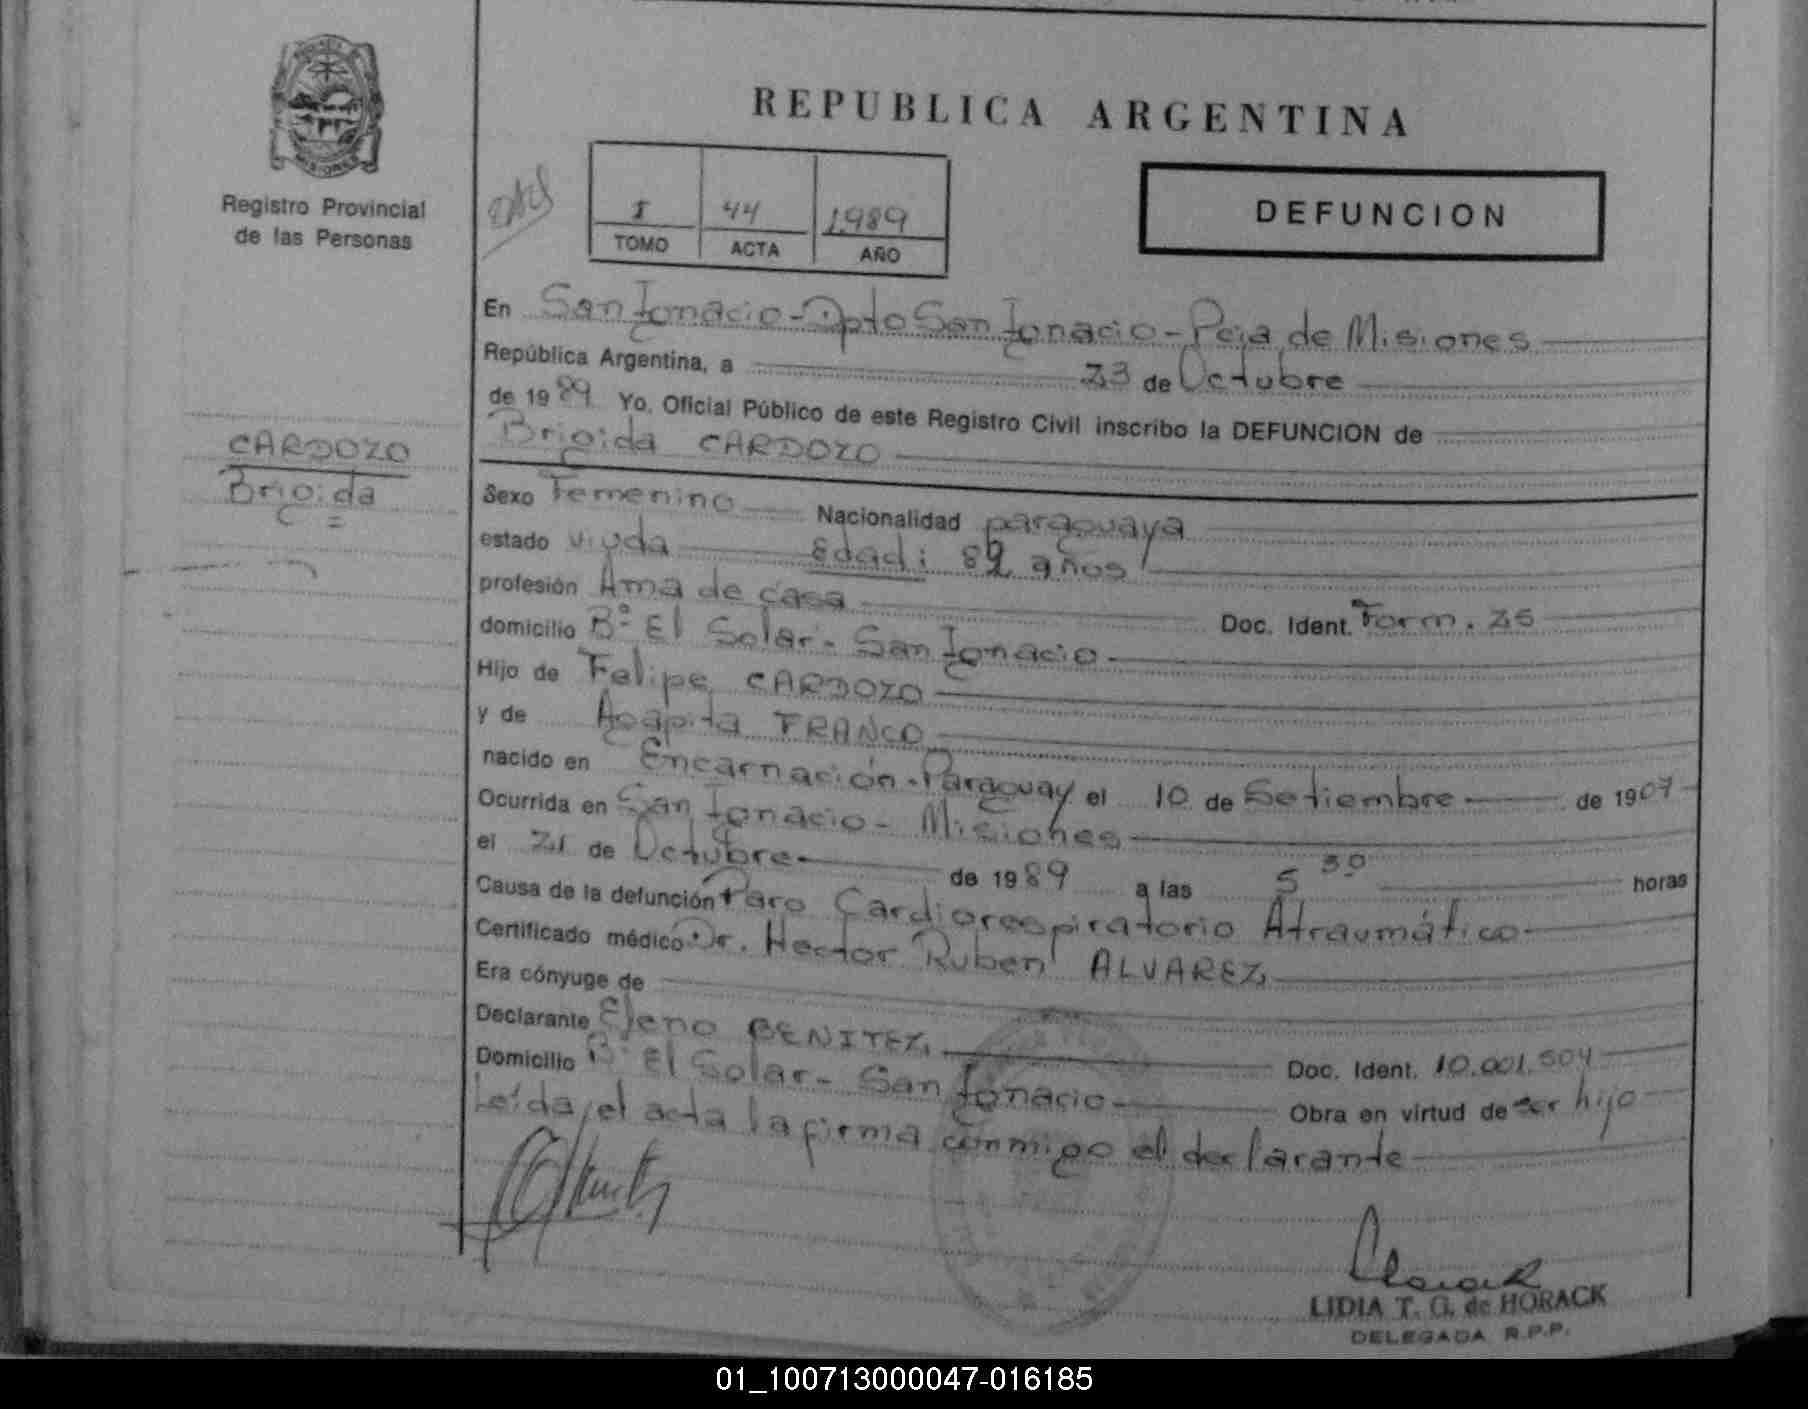 REPUBLICA ARGENTINA
Registro Provincial
de las Personas
I 44 1989
TOMO ACTA AÑO
DEFUNCION
En San Ignacio - Dpto San Ignacio - Pcia de Misiones
República Argentina, a 23 de Octubre
de 1989 Yo, Oficial Público de este Registro Civil inscribo la DEFUNCION de
Brigida CARDOZO
CARDOZO
Brigida
Sexo Femenino Nacionalidad paraguaya
estado viuda Edad: 82 años
profesión Ama de casa Doc. Ident. Form. 25
domicilio Bº El Solar - San Ignacio
Hijo de Felipe CARDOZO
y de Agapita FRANCO
nacido en Encarnación - Paraguay el 10 de Setiembre de 1907
Ocurrida en San Ignacio - Misiones
el 21 de Octubre de 1989 a las 5 30 horas
Causa de la defunción Paro Cardiorespiratorio Atraumático
Certificado médico Dr. Hector Ruben ALVAREZ
Era cónyuge de
Declarante Eleno BENITEZ Doc. Ident. 10.001.504
Domicilio Bº El Solar - San Ignacio Obra en virtud de ser hijo
Leída el acta la firma conmigo el declarante
LIDIA T. G. de HORACK
DELEGADA R.P.P.
01_100713000047-016185